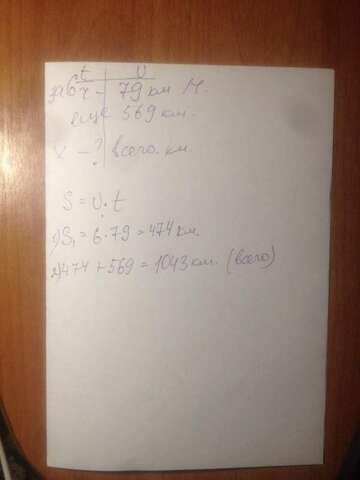 t v
за 6 ч - 79 км ч.
еще 569 км.
х - ? всего. км
S = v · t
1) S₁ = 6 · 79 = 474 км.
2) 474 + 569 = 1043 км. (всего)